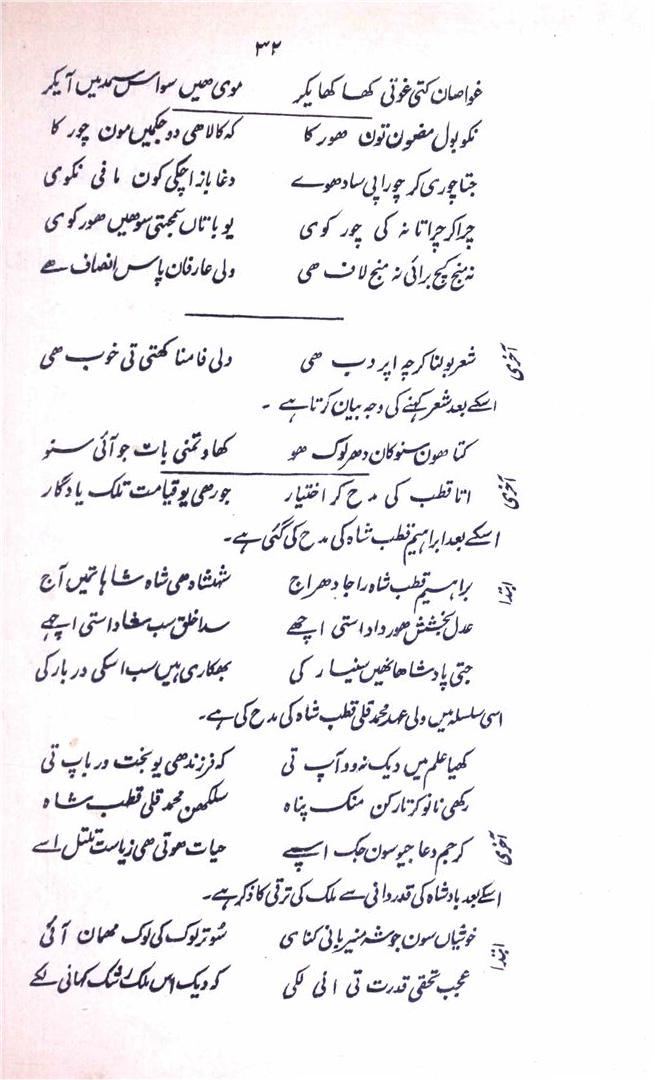 ۳۲
غواصان کتی غوتی کھا کھا یکر موی ھیں سو اس سمدیں آیکر
نکو بول مضمون تون ھور کا کہ کالا ھی دو جگمیں مون چور کا
جتا چوری کر چورا پی سا دھوے دغا باز اچکی کون ما فی نکوی
چرا کر چراتا نہ کی چور کوی یو باتاں سمجتی سو ھیں ھور کوی
نہ منج کیج برائی نہ منج لاف ھی ولی عارفان پاس انصاف ھے
آخری شعر بولنا کرچہ اپر دپ ھی ولی فامنا کھتی تی خوب ھی
اسکے بعد شعر کہنے کی وجہ بیان کرتا ہے ۔
کتا ھون سنو کان دھر لوک ھو کھاوتمنی بات جو آئی سنو
آخری اتا قطب کی مدح کر اختیار جو رھی یو قیامت تلک یادگار
اسکے بعد ابراہیم قطب شاہ کی مدح کی گئی ہے۔
ابتدا براہیم قطب شاہ راجا دھراج شہنشاہ ھی شاہ شاہاں تمیں آج
عدل بخشش ھور داد استی اچھے سدا خلق سب شاد استی اچھے
جتی پادشاھاں ھیں سنیسار کی بھکاری ہیں سب اسکی دربار کی
اسی سلسلہ میں ولی عہد محمد قلی قطب شاہ کی مدح کی ہے۔
کھیا علم میں دیک نہ دو آپ تی کہ فرزند ھی یو بخت ور باپ تی
رکھی نانو کرتار کن منک پناہ سلکھن محمد قلی قطب شاہ
آخری کر جم دعا جیو سون جک اسے حیات ھوتی ھی زیاست تلتل اسے
اسکے بعد بادشاہ کی قدردانی سے ملک کی ترقی کا ذکر ہے۔
ابتدا خوشیاں سون جو شہ میزبانی کنا ی سو ترلوک کی لوک مہمان آئی
عجب تحفی قدرت تی انی لکی کہ دیک اس ملک رشک کھانی لکے